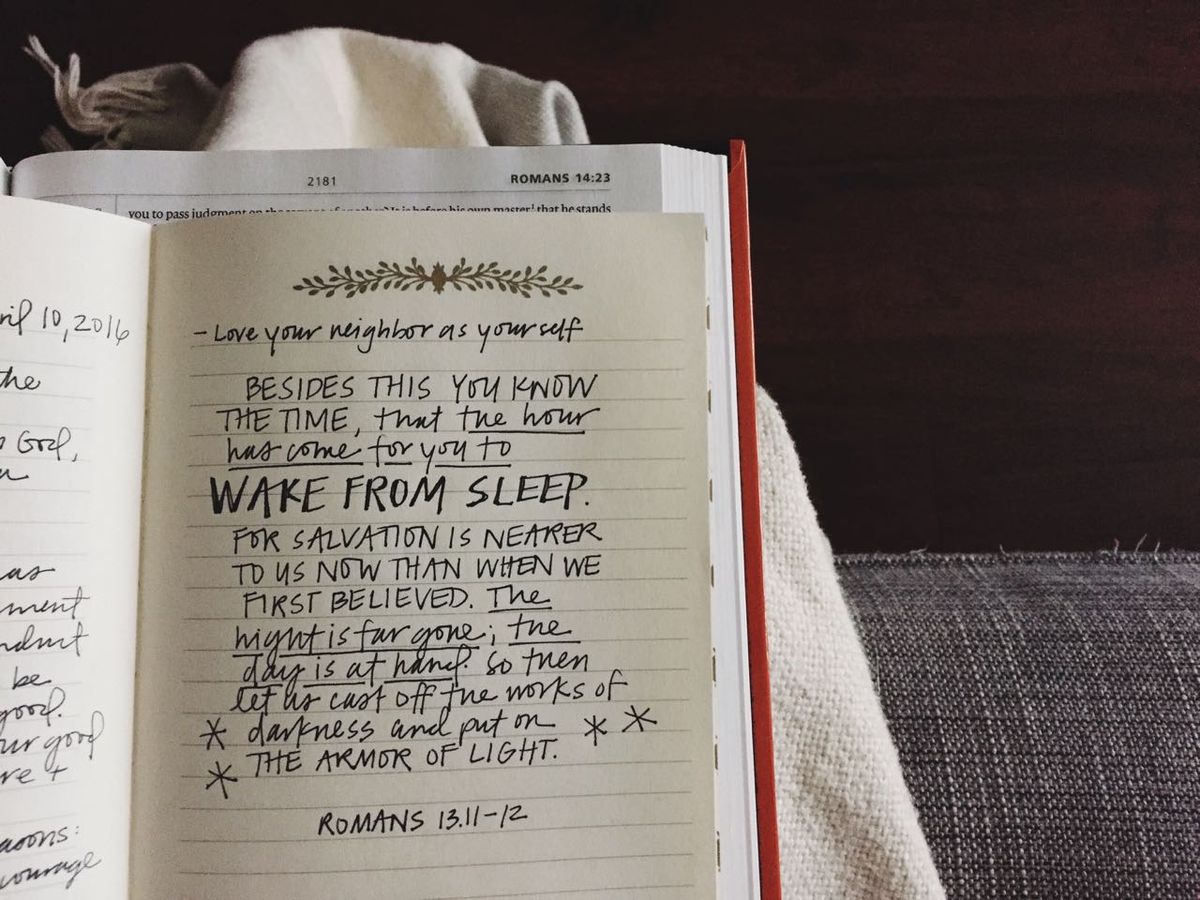 2181
ROMANS 14:23
you to pass judgment on the servant of another? It is before his own master that he stands
ril 10, 2016
the
God,
as
ment
be
good.
good
re +
courage
- Love your neighbor as yourself
BESIDES THIS YOU KNOW
THE TIME, that the hour
has come for you to
WAKE FROM SLEEP.
FOR SALVATION IS NEARER
TO US NOW THAN WHEN WE
FIRST BELIEVED. The
night is far gone; the
day is at hand. So then
let us cast off the works of
* darkness and put on * *
* THE ARMOR OF LIGHT.
ROMANS 13.11-12